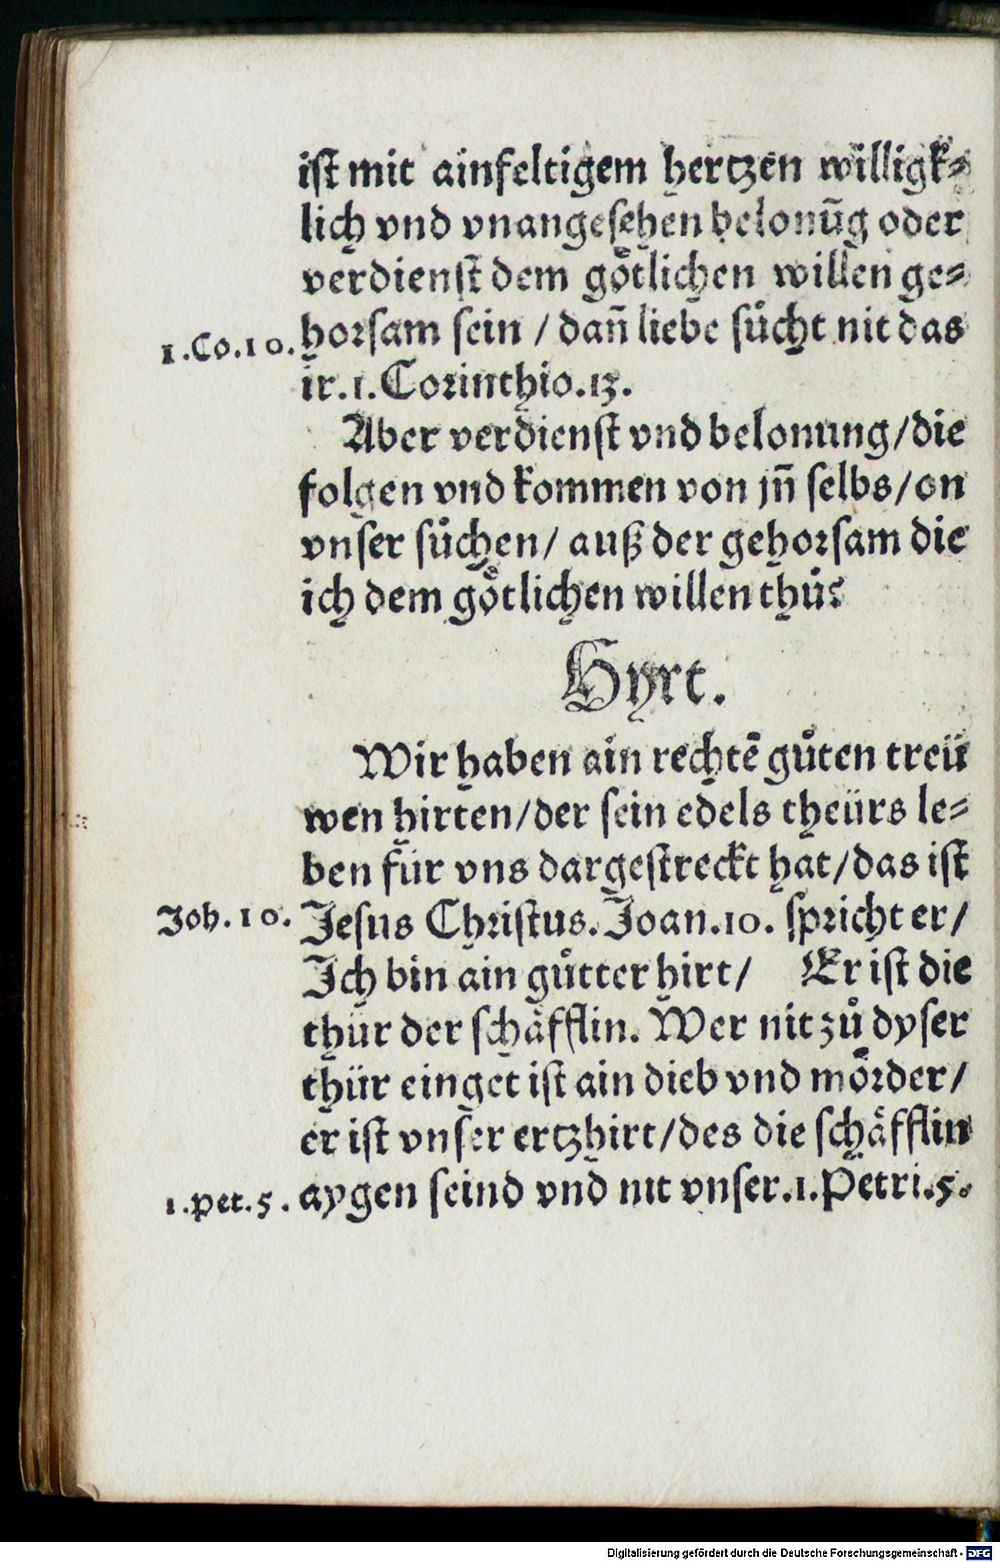 ist mit ainfeltigem hertzen willigk⸗
lich vnd vnangesehen belonūg oder
verdienst dem goͤtlichen willen ge⸗
1.Co.10. horsam sein / dañ liebe suͤcht nit das
ir.1.Corinthio.13.
Aber verdienst vnd belonung/die
folgen vnd kommen von jñ selbs/on
vnser suͤchen/ auß der gehorsam die
ich dem goͤtlichen willen thuͦ.
Hyrt.
Wir haben ain rechtē guͦten treü
wen hirten/der sein edels theürs le⸗
ben für vns dargestreckt hat/das ist
Joh.10. Jesus Christus. Joan.10. spricht er/
Ich bin ain guͦtter hirt/ Er ist die
thür der schaͤfflin. Wer nit zuͦ dyser
thür einget ist ain dieb vnd moͤrder/
er ist vnser ertzhirt/des die schaͤfflin
1.Pet.5. aygen seind vnd nit vnser.1.Petri.5.
Digitalisierung gefördert durch die Deutsche Forschungsgemeinschaft - DFG